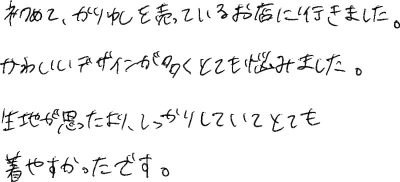 初めて、かりゆしを売っているお店に行きました。
かわいいデザインが多くとても悩みました。
生地が思ったより、しっかりしていてとても
着やすかったです。